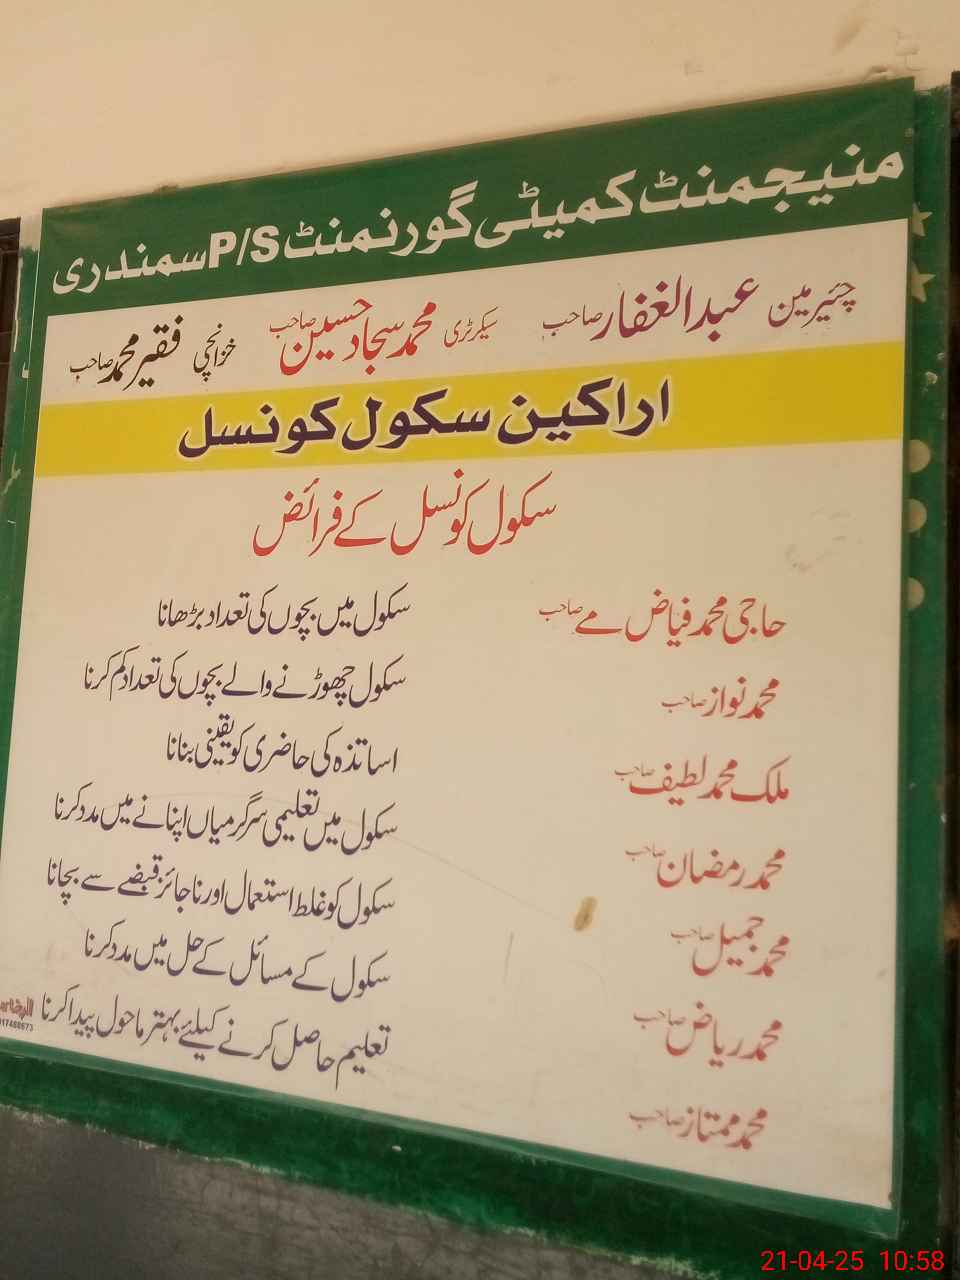 منیجمنٹ کمیٹی گورنمنٹ P/S سمندری
چئیرمین عبدالغفار صاحب سیکرٹری محمد سجاد حسین صاحب خزانچی فقیر محمد صاحب
اراکین سکول کونسل
سکول کونسل کے فرائض
حاجی محمد فیاض مے صاحب
محمد نواز صاحب
ملک محمد لطیف صاحب
محمد رمضان صاحب
محمد جمیل صاحب
محمد ریاض صاحب
محمد ممتاز صاحب
سکول میں بچوں کی تعداد بڑھانا
سکول چھوڑنے والے بچوں کی تعداد کم کرنا
اساتذہ کی حاضری کو یقینی بنانا
سکول میں تعلیمی سرگرمیاں اپنانے میں مدد کرنا
سکول کو غلط استعمال اور ناجائز قبضے سے بچانا
سکول کے مسائل کے حل میں مدد کرنا
تعلیم حاصل کرنے کیلئے بہتر ماحول پیدا کرنا
21-04-25 10:58